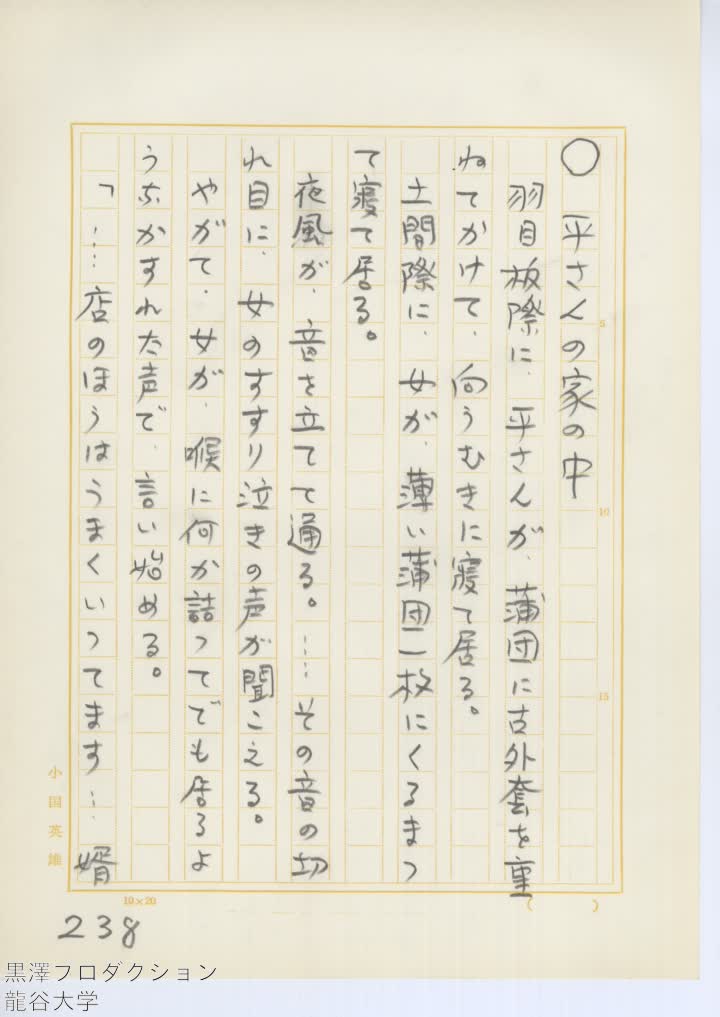 ○ 平さんの家の中
羽目板際に、平さんが、蒲団に古外套を重
ねてかけて、向うむきに寝て居る。
土間際に、女が、薄い蒲団一枚にくるまつ
て寝て居る。
夜風が、音を立てて通る。……その音の切
れ目に、女のすすり泣きの声が聞こえる。
やがて、女が、喉に何か詰ってでも居るよ
うなかすれた声で、言い始める。
「……店のほうはうまくいってます…婿
5
10
15
小国英雄
10×20
( )
238
黒澤プロダクション
龍谷大学